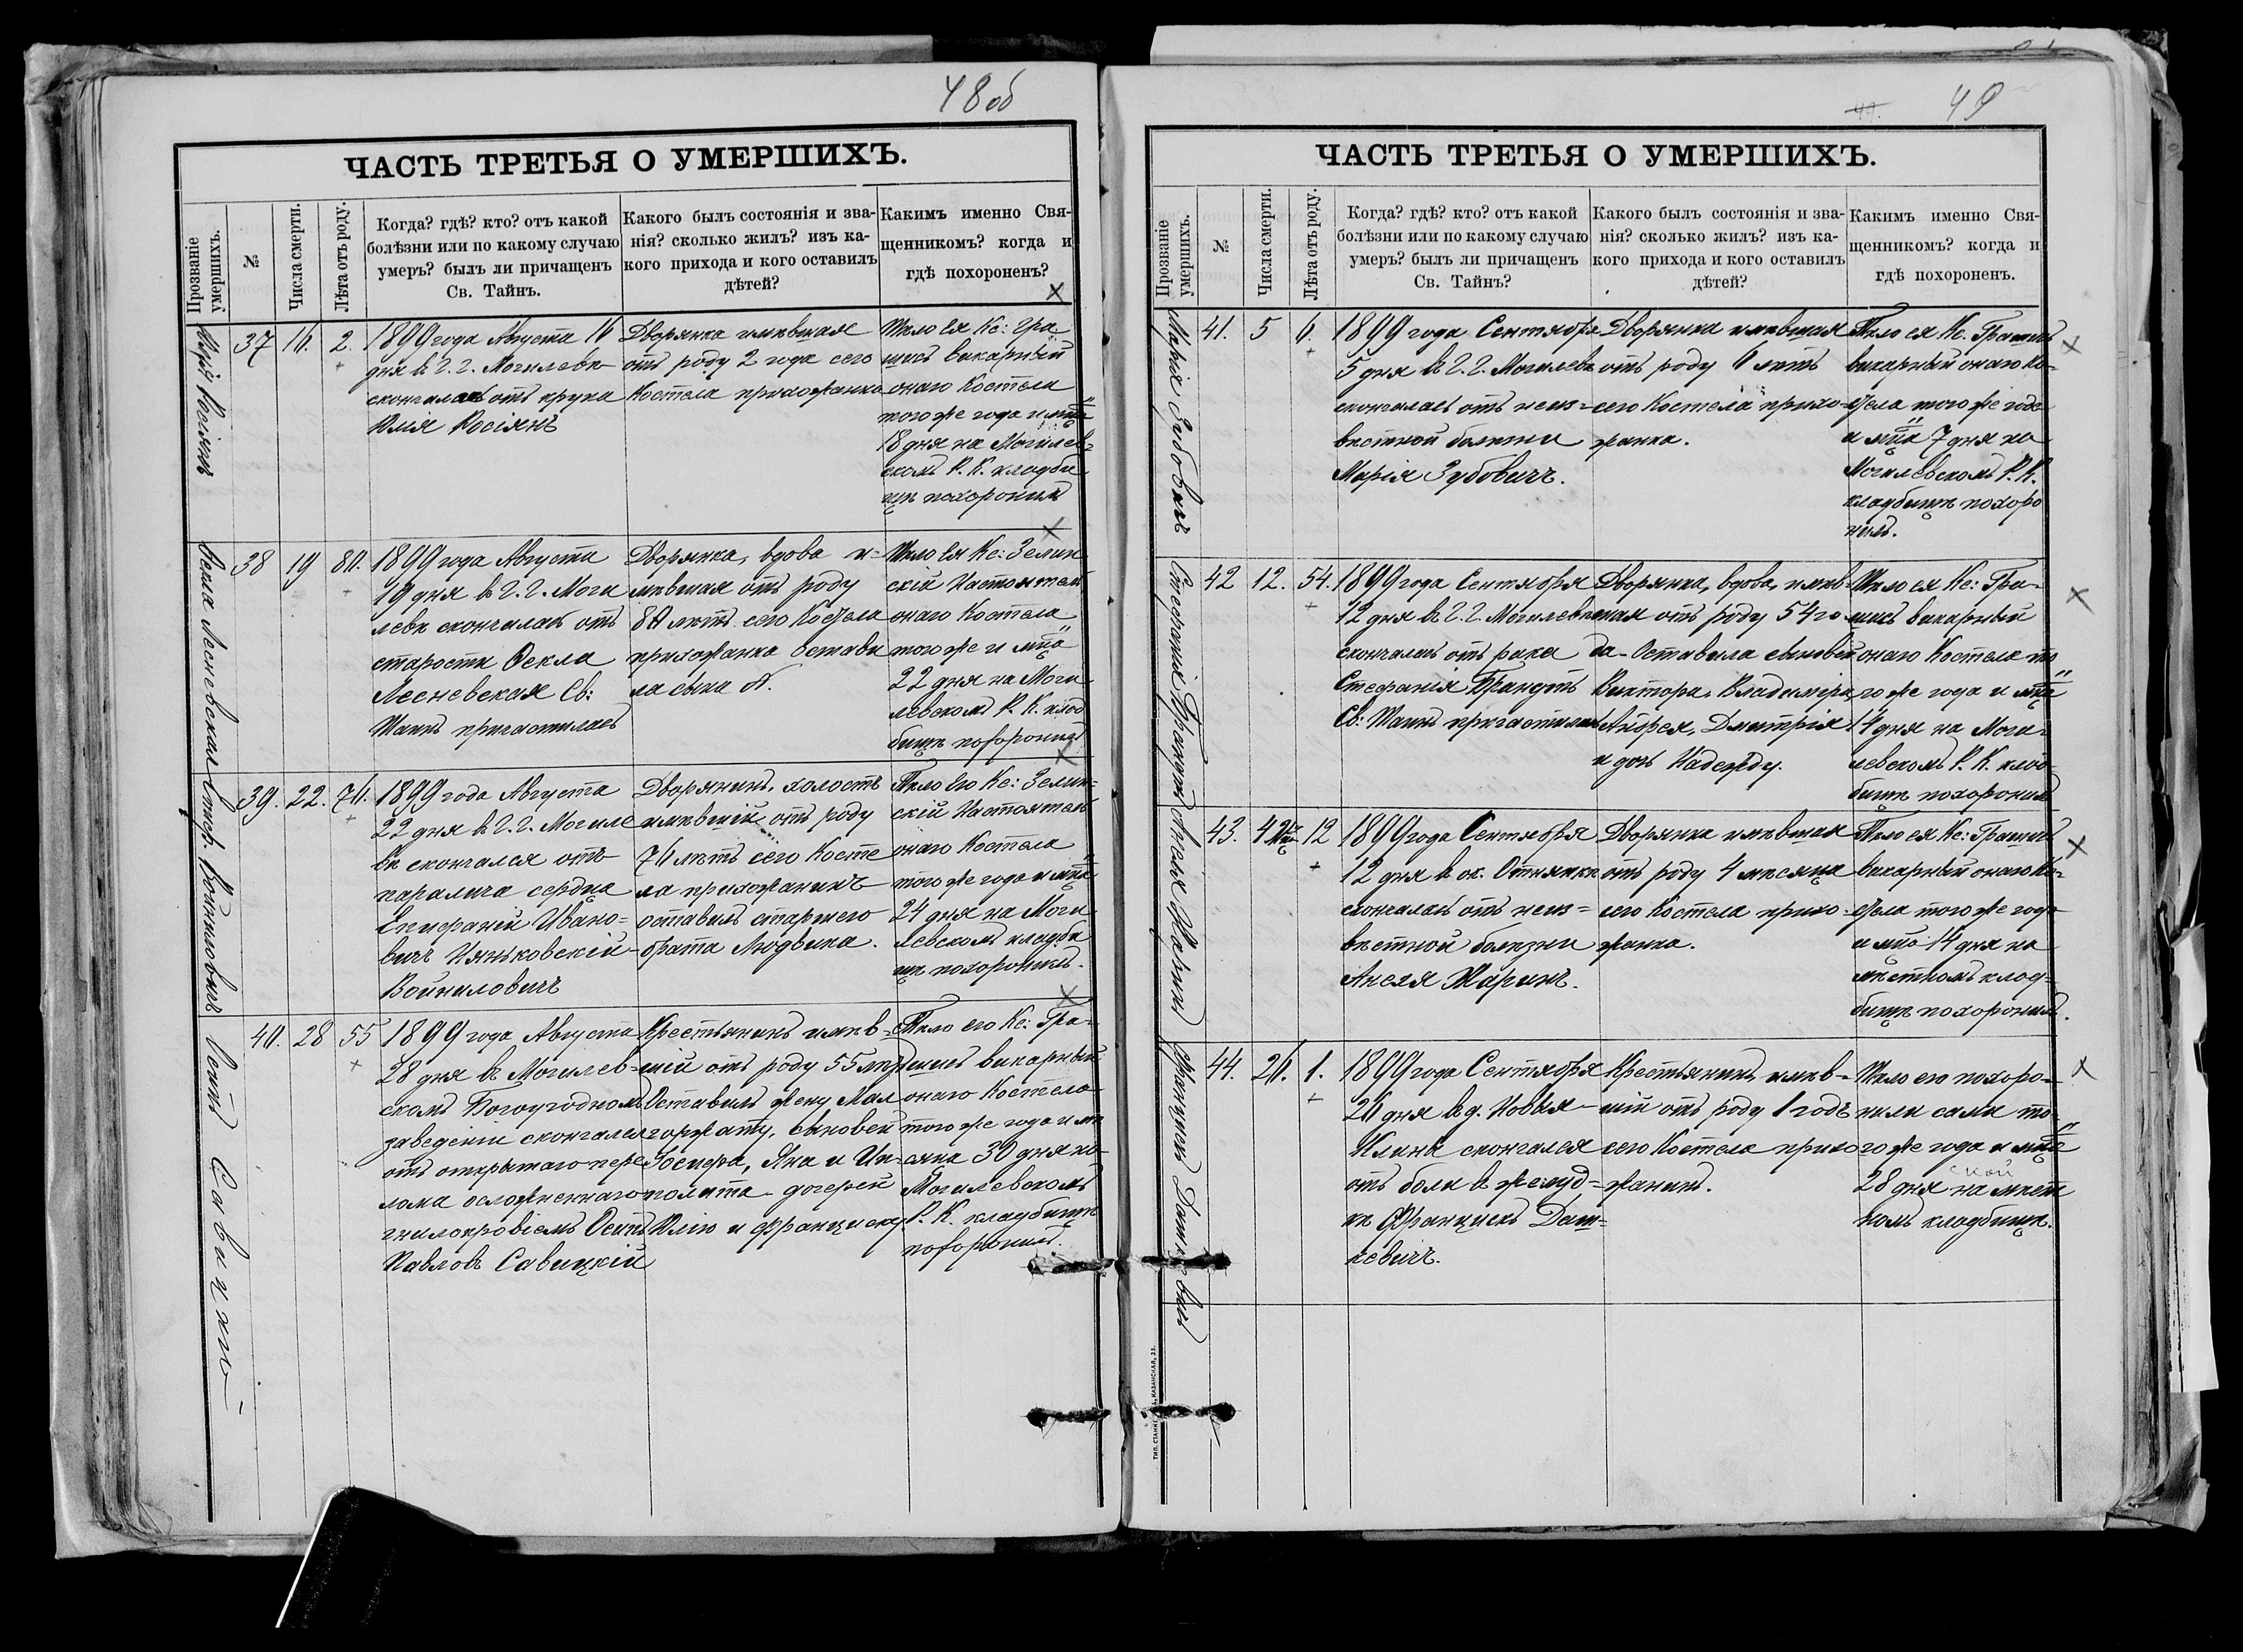 48об
ЧАСТЬ ТРЕТЬЯ О УМЕРШИХЪ.
Прозваніе умершихъ.
№
Числа смерти.
Лѣта отъ роду.
Когда? гдѣ? кто? отъ какой
болѣзни или по какому случаю
умеръ? былъ ли причащенъ
Св. Тайнъ.
Какого былъ состоянія и зва-
нія? сколько жилъ? изъ ка-
кого прихода и кого оставилъ
дѣтей?
Какимъ именно Свя-
щенникомъ? когда и
гдѣ похороненъ?
37
16.
2.
1899 года Августа 16
дня въ г. г. Могилевѣ
скончалась отъ крупа
Юлія Косіянъ
Дворянка имѣвшая
отъ роду 2 года сего
Костела прихожанка
Тѣло Ея Кс: Гра
шисъ викарный
онаго Костела
того же года и мца
18 дня на Могилев-
скомъ Р. К. кладби
щѣ похоронилъ
Текла Лесневская
38
19
80.
1899 года Августа
19 дня въ г. г. Моги
левѣ скончалась отъ
старости Текла
Лесневская Св:
Таинъ причастилась
Дворянка, вдова и-
мѣвшая отъ роду
80 лѣтъ сего Костела
прихожанка Остави
ла сына
Тѣло Ея Кс: Зелин
скій Настоятель
онаго Костела
того же и мца
22 дня на Моги
левскомъ Р. К. клад
бищѣ похоронилъ
Войниловичъ
39.
22.
76.
1899 года Августа
22 дня въ г. г. Могиле
вѣ скончался отъ
паралича сердца
Епифаній Ивано-
вичъ Няньковскій-
Войниловичъ
Дворянинъ, холостъ
имѣвшій отъ роду
76 лѣтъ сего Косте
ла прихожанинъ
оставилъ старшего
брата Людвика.
Тѣло Его Кс: Зелин-
скій Настоятель
онаго Костела
того же года и мца
24 дня на Моги
левскомъ кладби
щѣ похоронилъ.
40.
28
55
1899 года Августа
28 дня въ Могилев-
скомъ Богоугодномъ
заведеніи скончался
отъ открытаго пере
лома осложненнаго
гнилокровіемъ Осипъ
Павловъ Савицкій
Крестьянинъ имѣв-
шій отъ роду 55 лѣтъ
Оставилъ жену Мал
горжату, сыновей
Іосифа, Яна и Ип-
полита - дочерей
Юлію и Франциску.
Тѣло его Кс: Гра-
шисъ викарный
онаго Костела
того же года и мѣ
сяца 30 дня на
Могилевскомъ
Р. К. кладбищѣ
похоронилъ.
49
ЧАСТЬ ТРЕТЬЯ О УМЕРШИХЪ.
Прозваніе умершихъ.
№
Числа смерти.
Лѣта отъ роду.
Когда? гдѣ? кто? отъ какой
болѣзни или по какому случаю
умеръ? былъ ли причащенъ
Св. Тайнъ?
Какого былъ состоянія и зва-
нія? сколько жилъ? изъ ка-
кого прихода и кого оставилъ
дѣтей?
Какимъ именно Свя-
щенникомъ? когда и
гдѣ похороненъ.
Марія Зубовичъ
41.
5
6.
1899 года Сентября
5 дня въ г. г. Могилевѣ
скончалась отъ неиз-
вѣстной болѣзни
Марія Зубовичъ.
Дворянка имѣвшая
отъ роду 6 лѣтъ
сего Костела прихо-
жанка.
Тѣло ея Кс. Грашисъ
викарный онаго Ко-
стела того же года
и мца 7 дня на
Могилевскомъ Р. К.
кладбищѣ похоро
нилъ.
Стефанія Брандтъ
42
12.
54.
1899 года Сентября
12 дня въ г. г. Могилевѣ
скончалась отъ рака
Стефанія Брандтъ
Св: Таинъ причастилась
Дворянка, вдова, имѣв-
шая отъ роду 54 го
да - Оставила сыновей
Виктора, Владиміра,
Андрея, Дмитрія
и дочь Надежду.
Тѣло ея Кс: Гра-
шисъ викарный
онаго Костела то
го же года и мца
14 дня на Моги-
левскомъ Р. К. клад-
бищѣ похоронилъ
43.
4 мца
12
1899 года Сентября
12 дня въ ок.
скончалась отъ неиз-
вѣстной болѣзни
Анеля Жаринъ.
Дворянка имѣвшая
отъ роду 4 мѣсяца
сего Костела прихо-
жанка.
Тѣло ея Кс: Грашисъ
викарный онаго Ко-
стела того же года
и мца 14 дня на
мѣстномъ клад-
бищѣ похоронилъ.
44.
26.
1.
1899 года Сентября
26 дня въ д. Новыя
Клины скончался
отъ боли въ желуд-
кѣ Францискъ Даш-
кевичъ.
Крестьянинъ имѣв-
шій отъ роду 1 годъ
сего Костела прихо
жанинъ.
Тѣло его похоро-
нили сами то-
го же года и мца
28 дня на мѣст
номъ кладбищѣ.